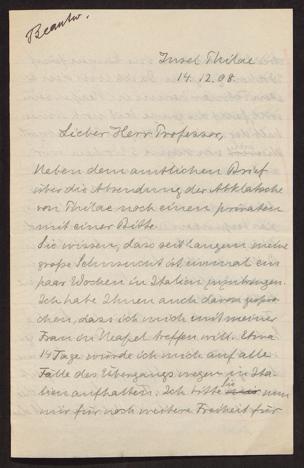 Beantw.
Insel Philae
14.12.08.
Lieber Herr Professor,
Neben dem amtlichen Brief
über die Absendung der Abklatsche
von Philae noch einen privaten
mit einer Bitte.
Sie wissen, dass seit langem meine
große Sehnsucht ist einmal ein
paar Wochen in Italien zuzubringen.
Ich habe Ihnen auch davon gespro-
chen, dass ich mich mit meiner
Frau in Neapel treffen will. Etwa
14 Tage würde ich mich auf alle
Fälle des Übergangs wegen in Ita-
lien aufhalten. Ich bitte Sie nun
mir für noch weitere Freiheit für